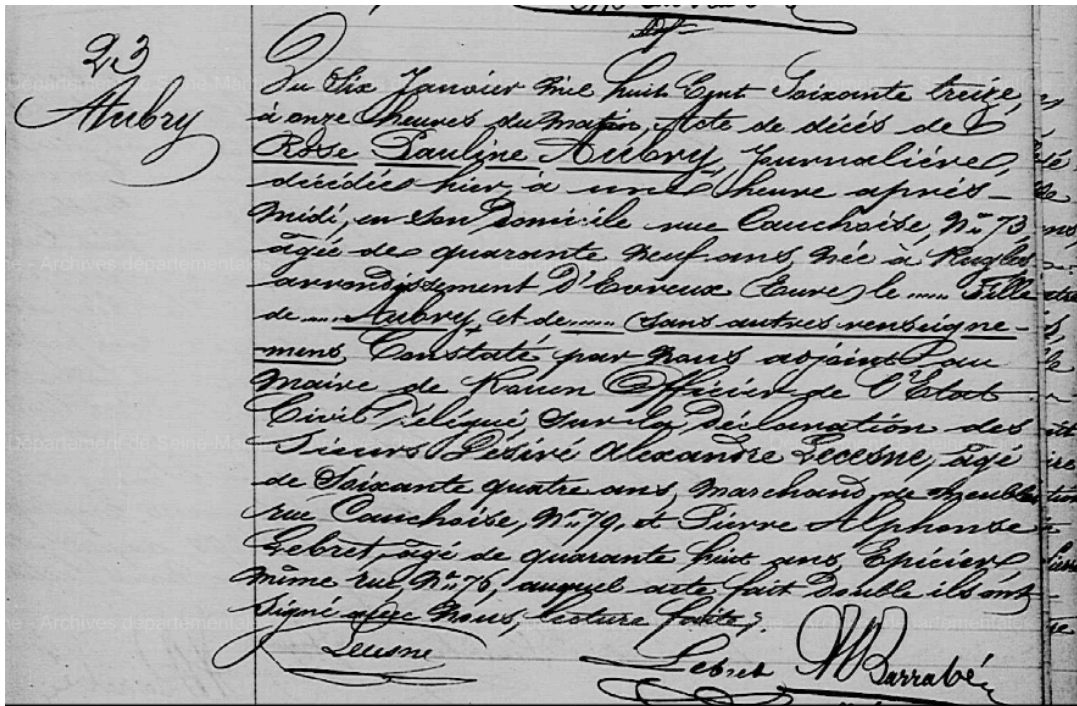 23
Aubry
Du Dix Janvier mil huit Cent Soixante treize,
à onze heures du Matin, Acte de décès de
Rose Pauline Aubry, Journalière,
décédée hier, à une heure après-
midi, en son Domicile rue Cauchoise, N.º 73,
âgée de quarante neuf ans, née à Rugles
arrondissement D'Evreux (Eure) le ..... Fille
de .... Aubry, et de ..... (sans autres renseigne-
-mens, Constaté par Nous adjoint au
Maire de Rouen Officier de l'Etat
Civil Délégué, Sur la Déclaration des
Sieurs Désiré Alexandre Lecesne, âgé
de Soixante quatre ans, Marchand de meubles
rue Cauchoise, N.º 79, et Pierre Alphonse
Lebret, âgé de quarante huit ans, Epicier
même rue, N.º 76, auquel acte fait Double ils ont
Signé avec Nous, lecture faite,.
Lecesne
Lebret Barrabé